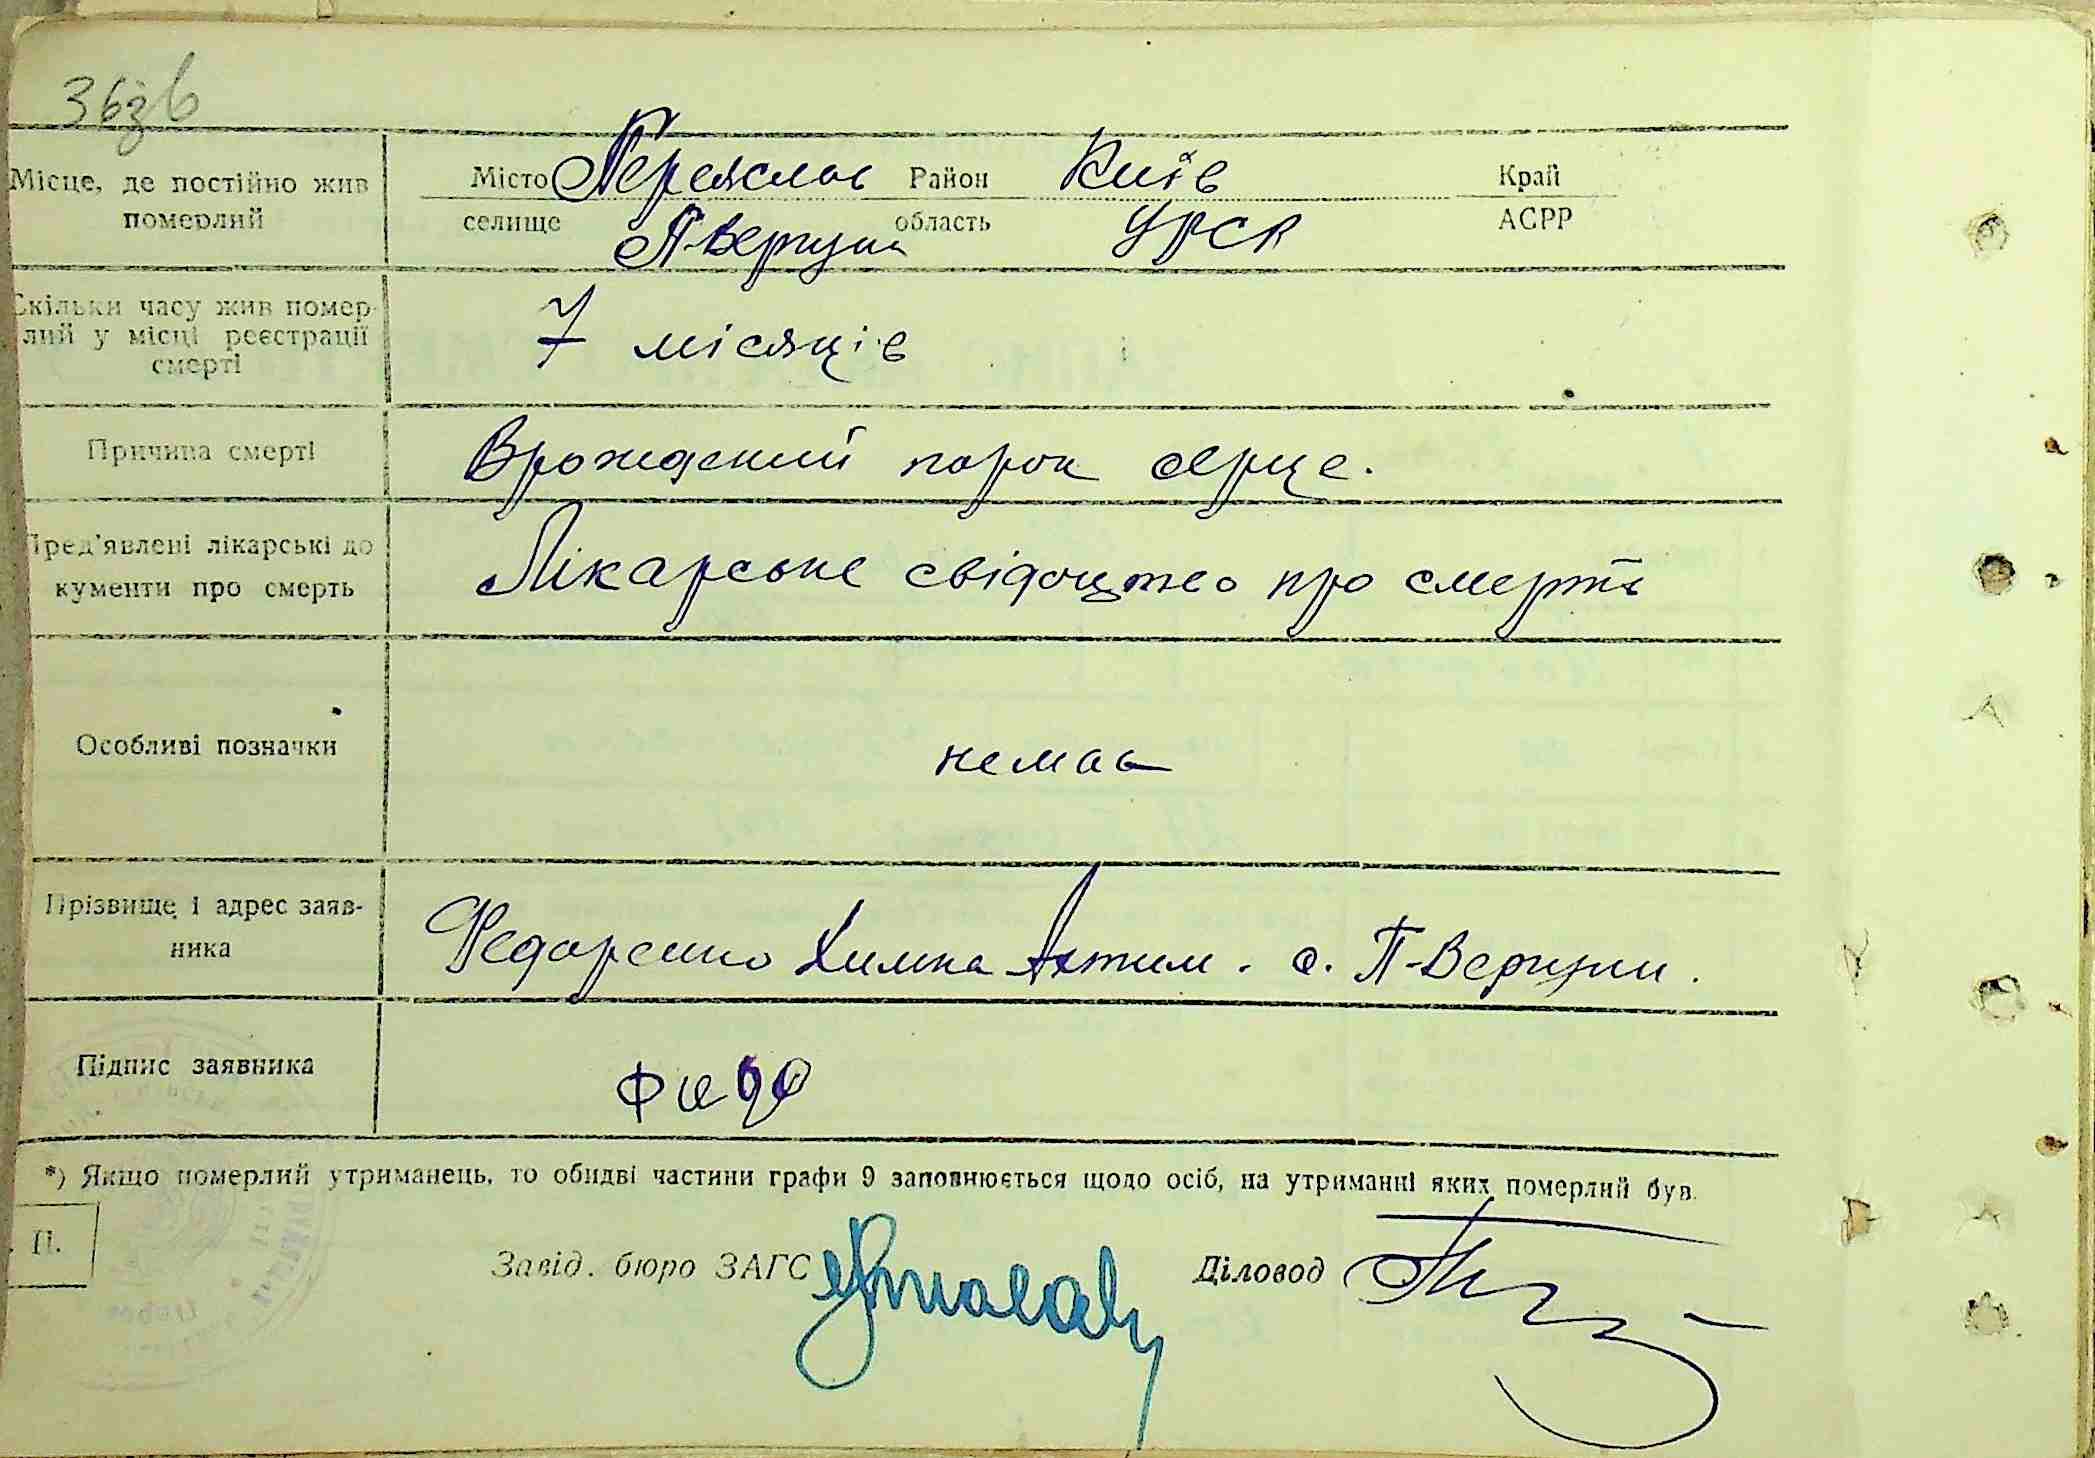 36зв
Місце, де постійно жив
померлий
Місто Переяслав Район Київ Край
селище П-Вергуни область УРСР АСРР
Скільки часу жив помер-
лий у місці реєстрації
смерті
7 місяців
Причина смерті
Врождений порок серце.
Пред'явлені лікарські до
кументи про смерть
Лікарське свідоцтво про смерть
Особливі позначки
немає
Прізвище і адрес заяв-
ника
Федоренко Химка с. П-Вергуни.
Підпис заявника
*) Якщо померлий утриманець, то обидві частини графи 9 заповнюється щодо осіб, на утриманні яких померлий був.
П.
Завід. бюро ЗАГС
Діловод